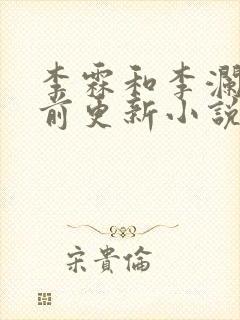 李霖和李瀾
前更新小說
宋貴倫